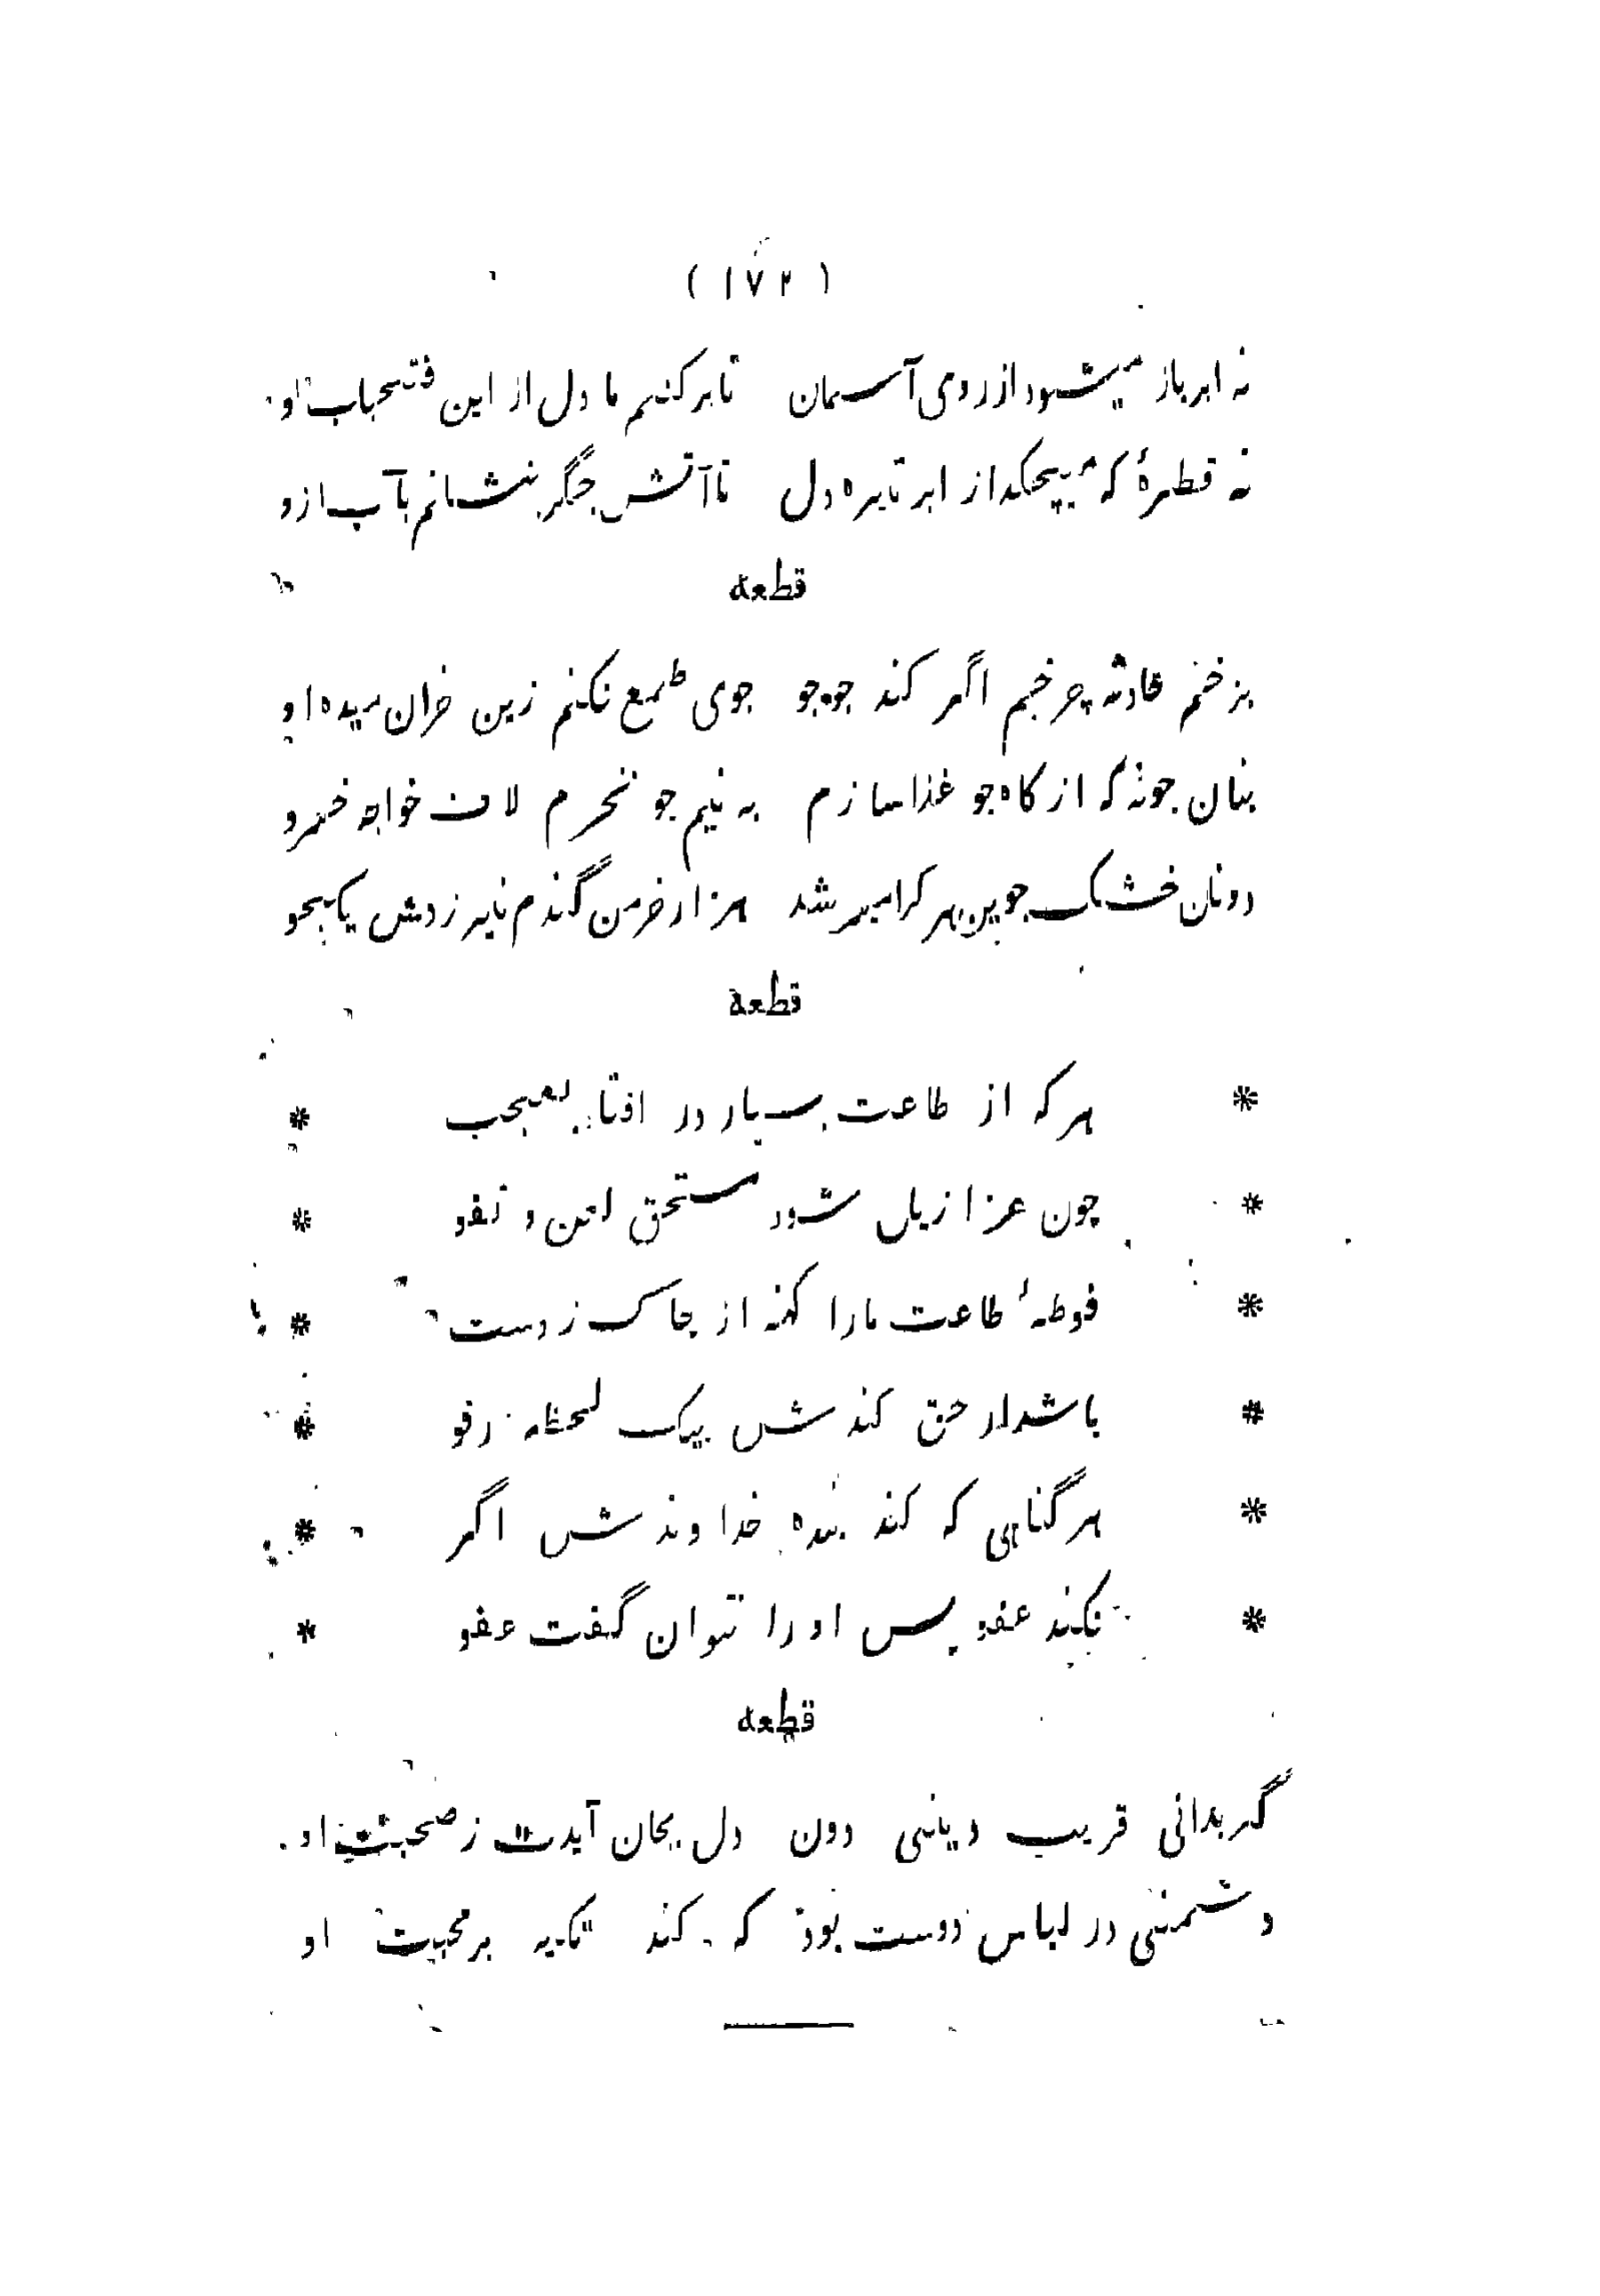 ( ۱۷۲ )
نه ابر باز میشود از روی آسمان تا بر کنیم ما دل از این فتحباب او
نه قطرهٔ که میچکد از ابر تایره دل تا آتش جگر بنشانم بآب ازو
قطعه
بزخم حادثه چرخم اگر کند جوجو جوی طمع نکنم زین خران میده او
بنان جو نه که از کاه جو غذا سازم به نیم جو نخرم لاف خواجه خسرو
دو نان خشک جوین هر کرا میسر شد هزار خرمن گندم نایرزدش یکجو
قطعه
* هر که از طاعت بسیار در افتاد بعجب *
* چون عزازیل شود مستحق لعن و تفو *
* فوطهٔ طاعت ما را کهنه از چاک زدست *
* باشد ار حق کندش بیک لحظه رفو *
* هر گناهی که کند بنده خداوندش اگر *
* نکند عفو پس او را نتوان گفت عفو *
قطعه
گر بدانی قریب دون دل بجان آیدت ز صحبت او
دشمنی در لباس دوست بود که کند تکیه بر محبت او